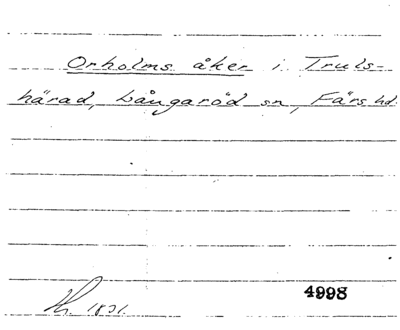 Orholms åker i Truls-
härad, Långaröd sn, Färs hd.
4998
1831.